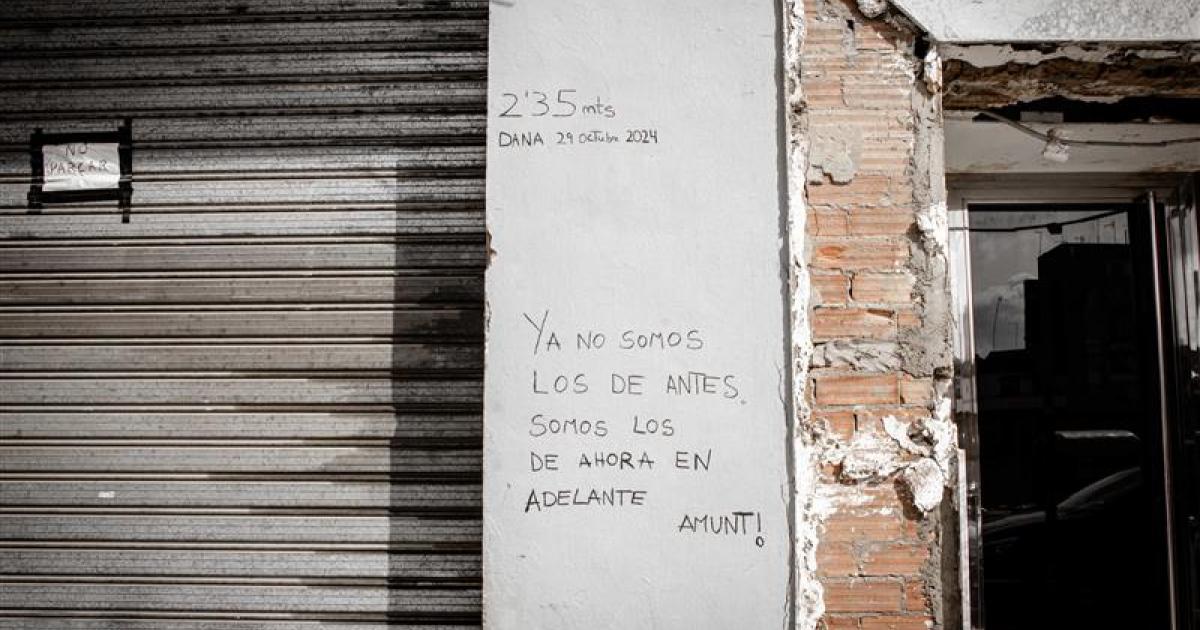 NO
PARCAR
2'35 mts
DANA 29 octubre 2024
YA NO SOMOS
LOS DE ANTES.
SOMOS LOS
DE AHORA EN
ADELANTE
AMUNT!